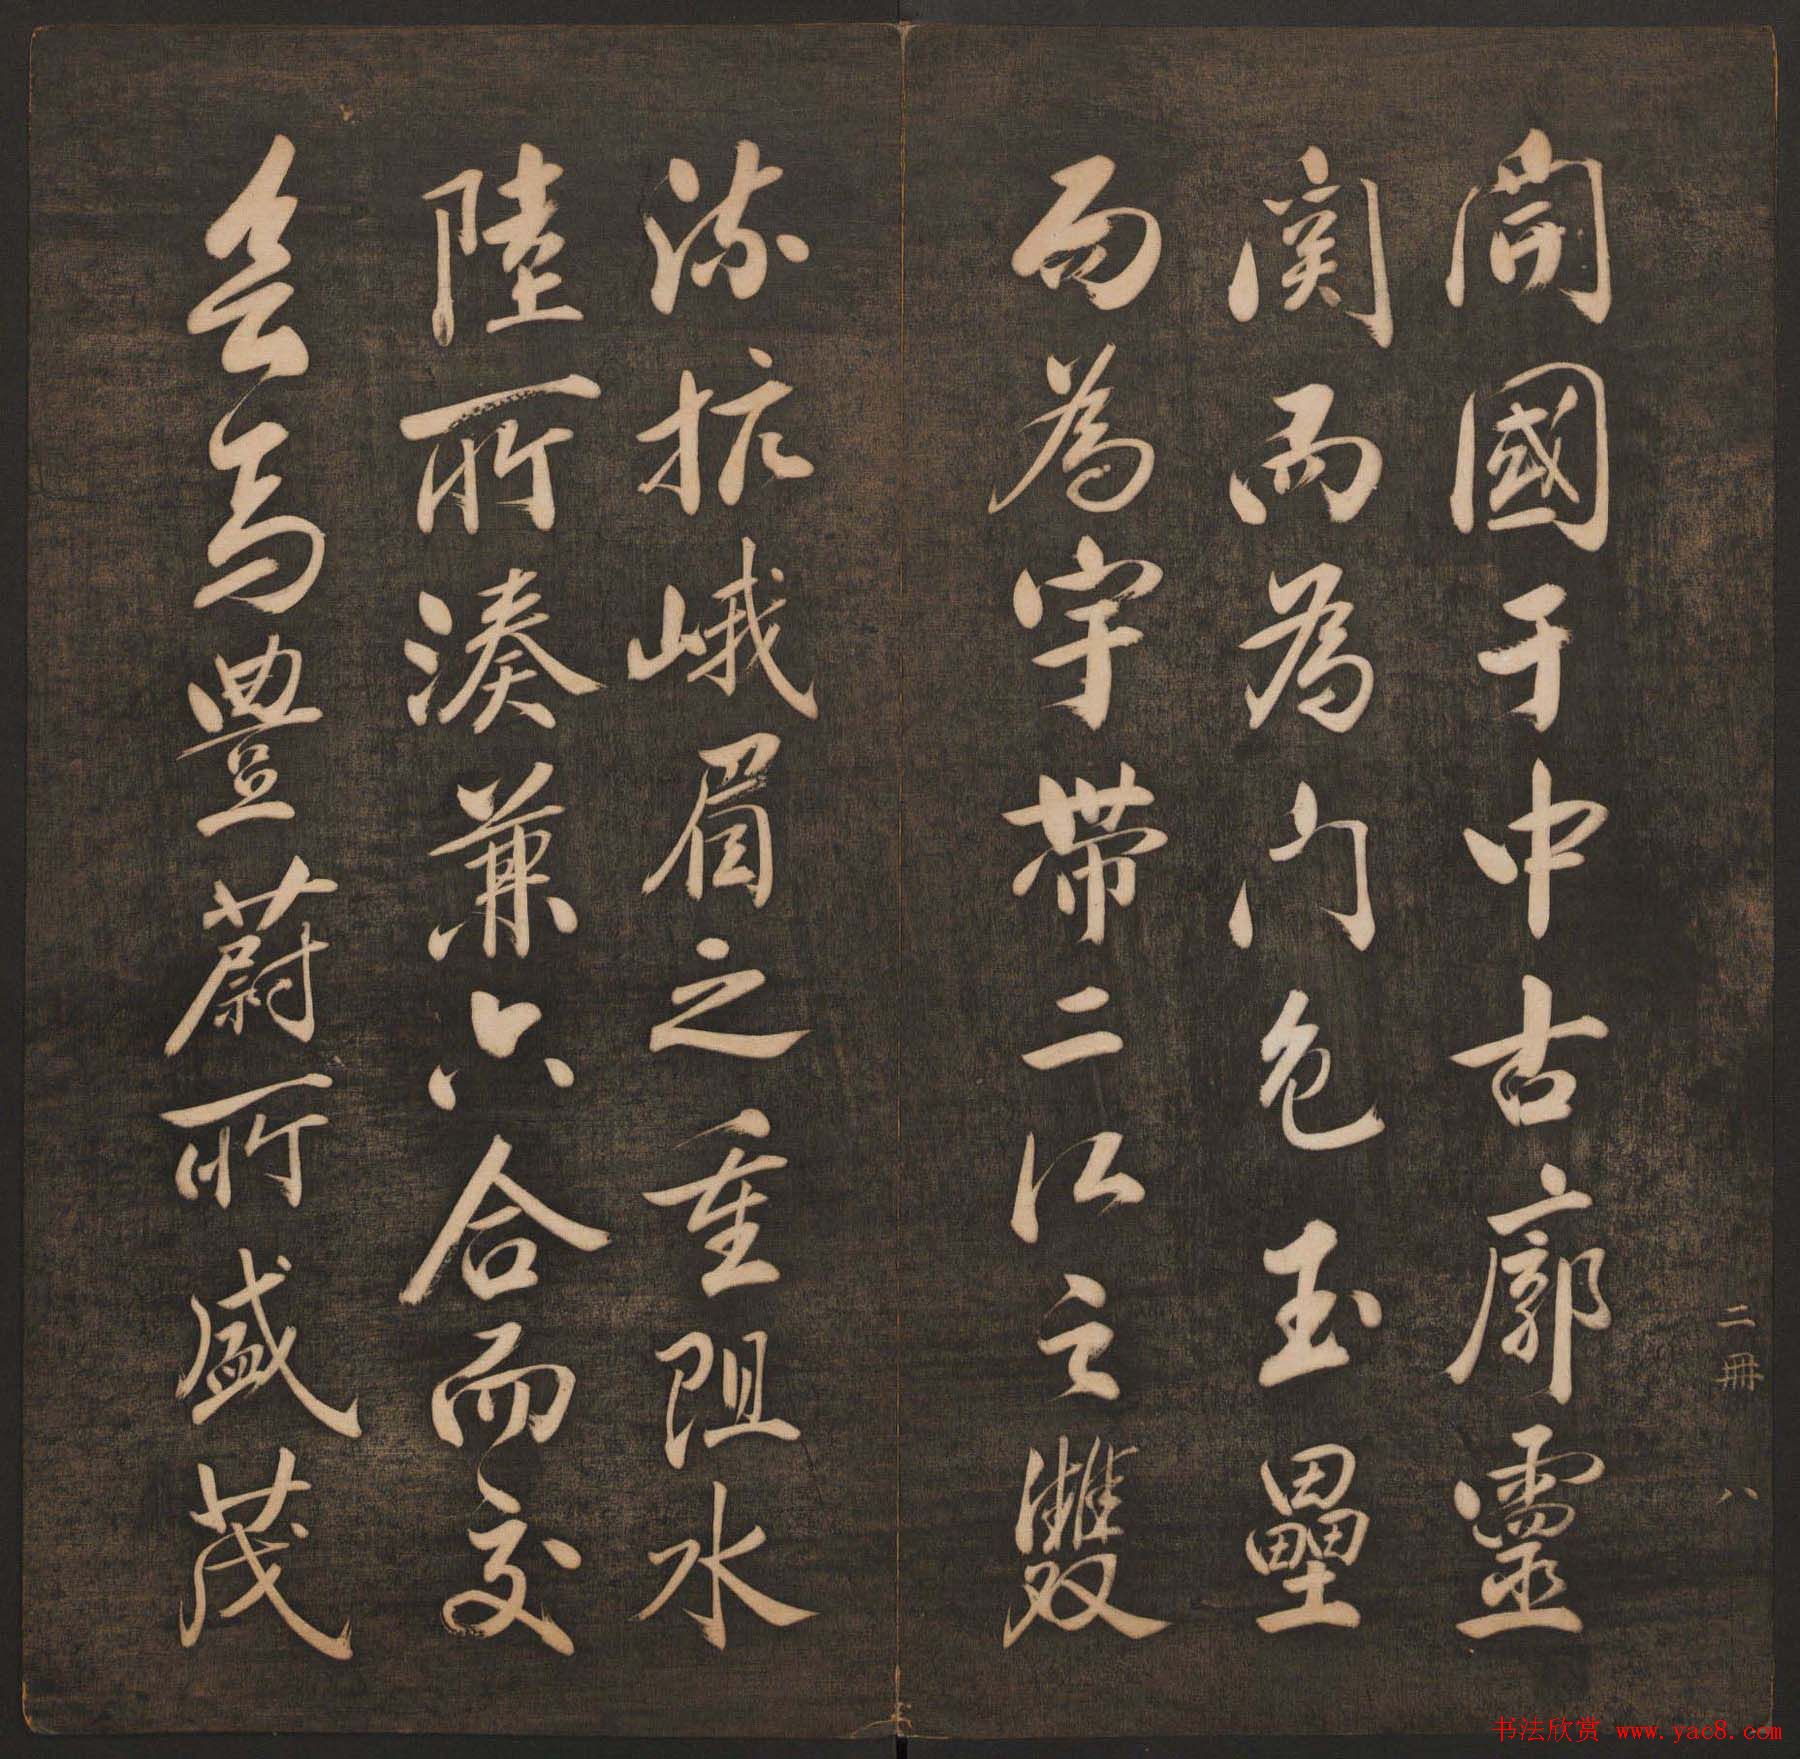 開國于中古廓靈
関而為門包玉壘
而為宇帶二江之雙
流抗峨眉之重阻水
陸所湊兼六合而交
會焉豐蔚所盛茂
二冊 八
书法欣赏 www.yac8.com